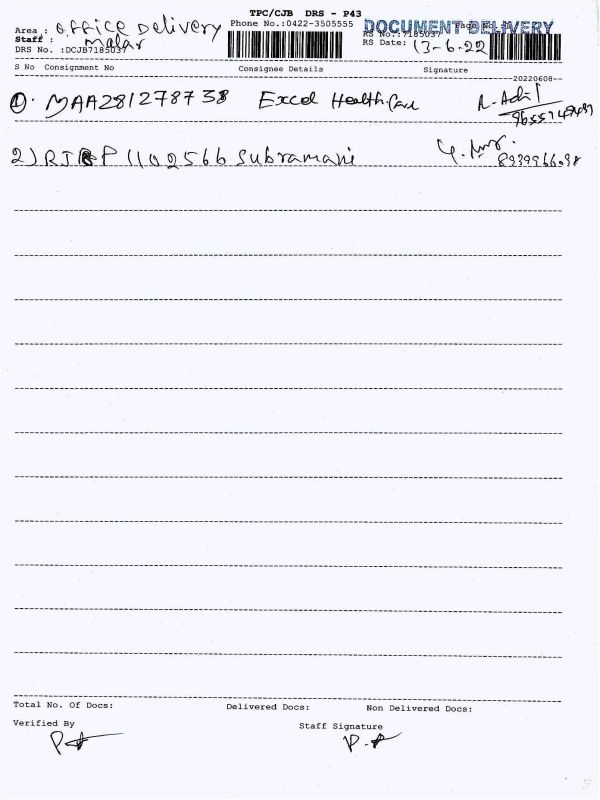 TPC/CJB DRS - P43
Area : office Delivery
Phone No.:0422-3505555
DOCUMENT DELIVERY
Staff : malar
RS No.:7185037
DRS No. :DCJB7185037
RS Date: 13-6-22
S No Consignment No Consignee Details Signature
20220608
1). MAA281278738 Excel HealthCare
2) 1102566 Subramani 
Total No. Of Docs: Delivered Docs: Non Delivered Docs:
Verified By Staff Signature